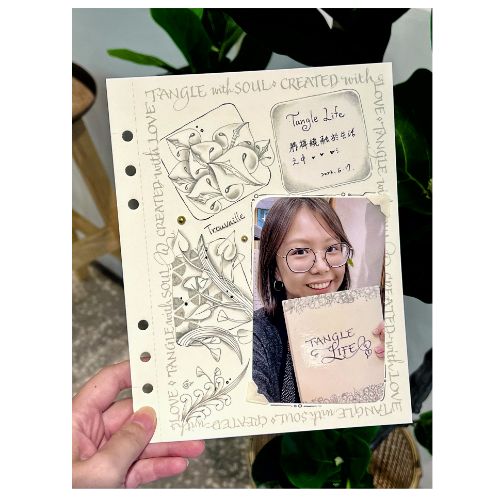 TANGLE with SOUL CREATED with
LOVE TANGLE
CREATED with LOVE
TANGLE with SOUL
LOVE
CREATED with LOVE
TANGLE with SOUL CREATED with
Tangle Life
將禪繞融於生活
之中
Trouvaille
TANGLE
LIFE